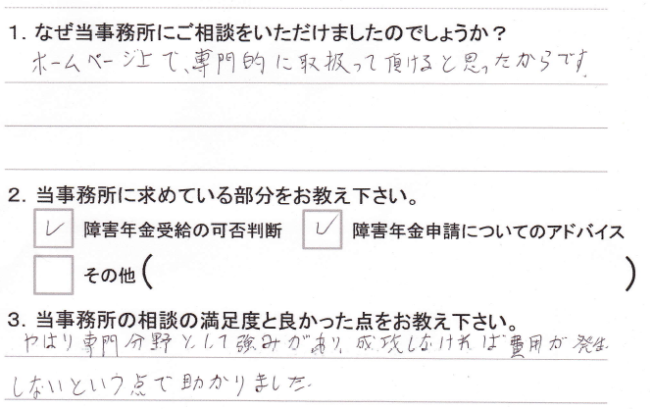 1. なぜ当事務所にご相談をいただけましたのでしょうか？
ホームページ上で、専門的に取扱って頂けると思ったからです。
2. 当事務所に求めている部分をお教え下さい。
障害年金受給の可否判断 障害年金申請についてのアドバイス
その他（ ）
3. 当事務所の相談の満足度と良かった点をお教え下さい。
やはり専門分野として強みがあり、成功しなければ費用が発生
しないという点で助かりました。